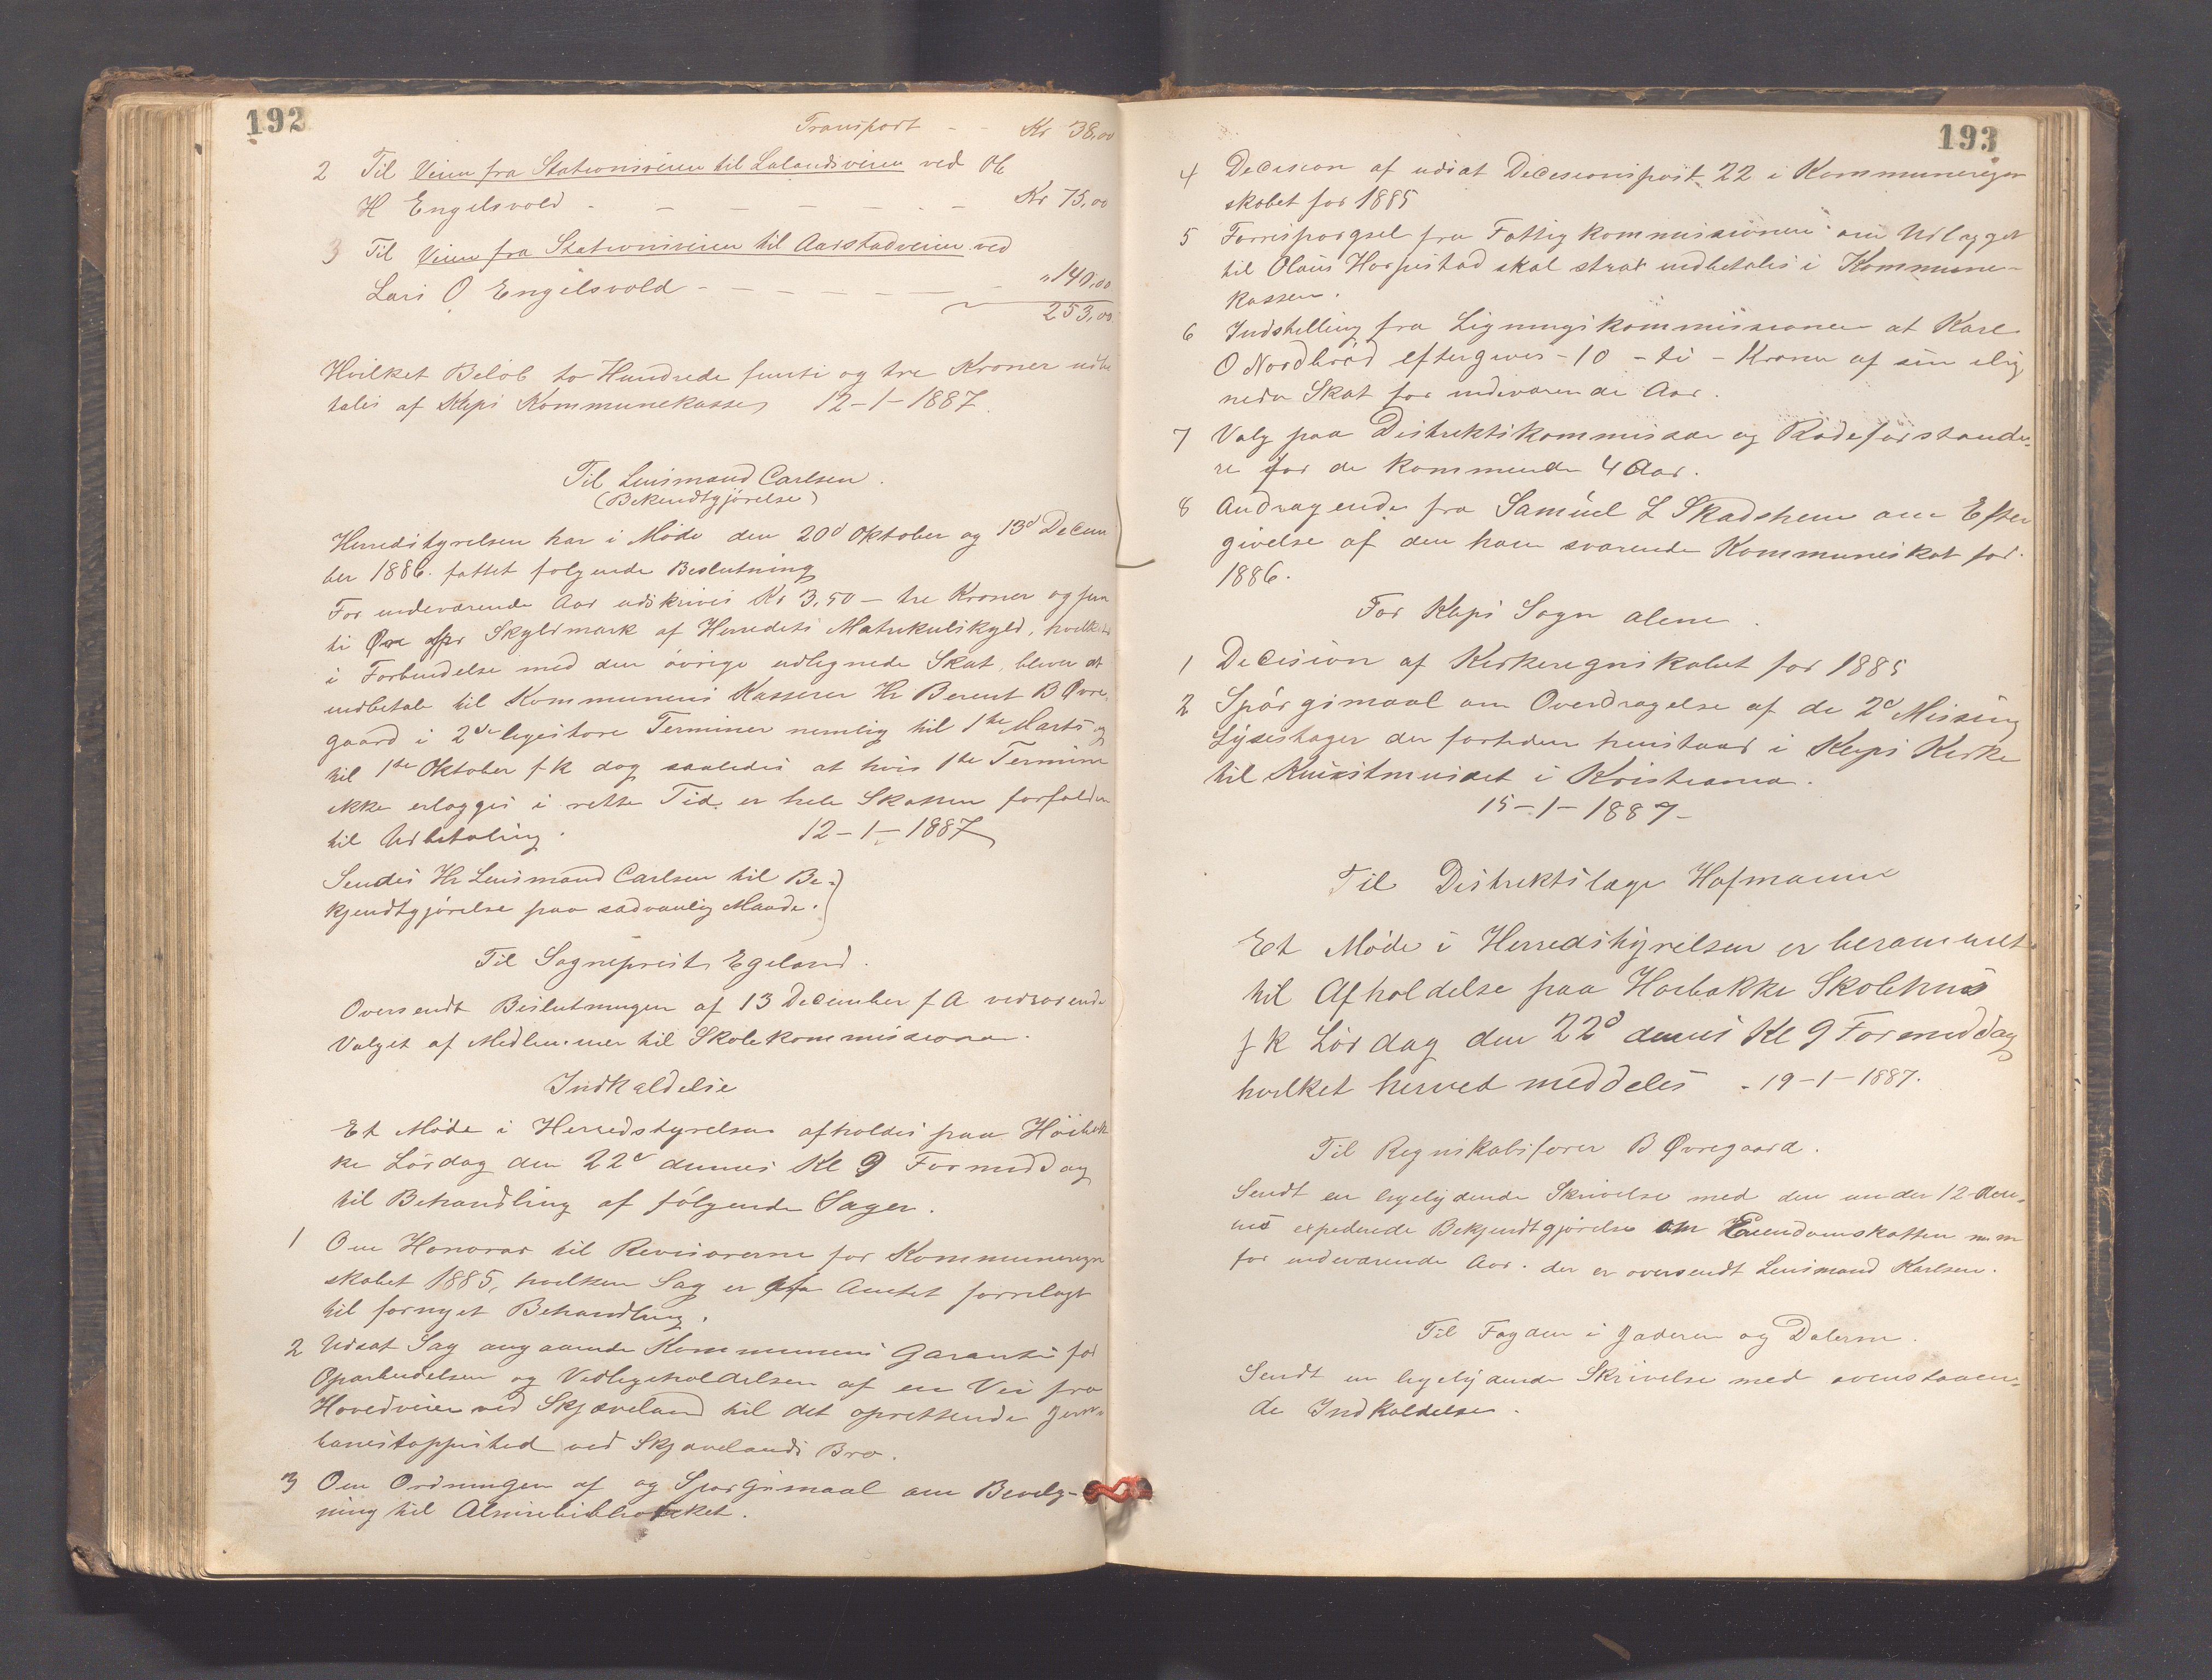 192
Transport - - Kr 38,00
2 Til Veien fra Stationsveien til Lalandsveien ved Ole
H Engelsvold - - - - - - - Kr 75,00
3 Til Veien fra Stationsveien til Aarstadveien ved
Lars O Engelsvold - - - - - - - " 140,00
253,00
Hvilket Beløb to Hundrede femti og tre Kroner udbe
tales af Kleps Kommunekasse, 12-1-1887.
Til Lensmand Carlsen.
(Bekendtgjörelse)
Herredstyrelsen har i Möde den 20d Oktober og 13d Decem
ber 1886. fattet følgende Beslutning
For indeværende Aar udskrives Kr 3,50 - tre Kroner og fem
ti Øre pr Skyldmark af Herredets Matrikulskyld, hvilket
i Forbindelse med den övrige udlignede Skat, bliver at
indbetale til Kommunens Kasserer Hr Berent B Øvre-
gaard i 2de ligestore Terminer nemlig til 1ste Marts og
til 1ste Oktober f k dog saaledes at hvis 1ste Termin
ikke erlægges i rette Tid er hele Skatten forfalden
til Udbetaling. 12-1-1887
Sendes Hr Lensmand Carlsen til Be-
kjendtgjörelse paa sædvanlig Maade.
Til Sogneprest Egeland.
Oversendt Beslutningen af 13 December f A vedrörende
Valget af Medlemmer til Skolekommissionen.
Indkaldelse
Et Möde i Herredstyrelsen afholdes paa Höibak
ke Lördag den 22d dennes Kl 9 Formiddag
til Behandling af fölgende Sager.
1 Om Honorar til Revisorerne for Kommuneregn
skabet 1885, hvilken Sag er fra Amtet forrelagt
til fornyet Behandling.
2 Udsat Sag angaaende Kommunens Garanti for
Oparbeidelsen og Vedligeholdelsen af en Vei fra
Hovedveien ved Skjæveland til det oprettende Jern-
banestoppested ved Skjævelands Bro.
3 Om Ordningen af og Spørgsmaal om Bevilg-
ning til Almuebibliotheket.
193
4 Decision af udsat Decesionspost 22 i Kommuneregn
skabet for 1885
5 Forrespørgsel fra Fattigkommissionen om Udlægget
til Olaus Horpestad skal strax indbetales i Kommune-
kassen.
6 Indstilling fra Ligningskommissionen at Karl
O Nordbröd eftergives - 10 - ti - Kroner af sin ilig
nede Skat for indeværende Aar.
7 Valg paa Distriktskommissær og Rodeforstande-
re for de kommende 4 Aar.
8 Andragende fra Samuel L Skadsheim om Efter
givelse af den ham svarende Kommuneskat for
1886.
For Kleps Sogn alene.
1 Decision af Kirkeregnskabet for 1885
2 Spörgsmaal om Overdragelse af de 2d Messing
Lysestager der fortiden henstaar i Kleps Kirke
til Kunstmuseet i Kristiania.
15-1-1887-
Til Distriktslæge Hofmann
Et Möde i Herredstyrelsen er berammet
til Afholdelse paa Høibakke Skolehus
f k Lördag den 22d dennes Kl 9 Formiddag
hvilket herved meddeles - 19-1-1887.
Til Regnskabsfører B Øvregaard.
Sendt en ligelydende Skrivelse med den under 12 den-
nes expederede Bekjendtgjörelse om Eiendomskatten m m
for indeværende Aar. der er oversendt Lensmand Karlsen.
Til Fogden i Jæderen og Dalerne.
Sendt en ligelydende Skrivelse med ovenstaaen-
de Indkaldelse.